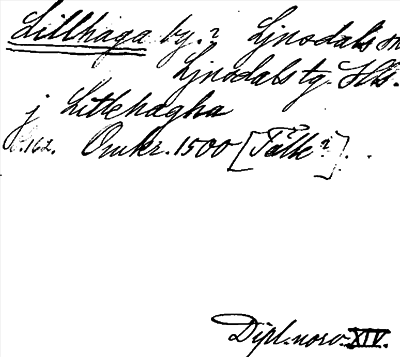 Lillhaga by.? Ljusdals sn
Ljusdals tg. Hls.
j Litlehagha
s.162. Omkr. 1500 [Tälle?].
Dipl. norv. XIV.